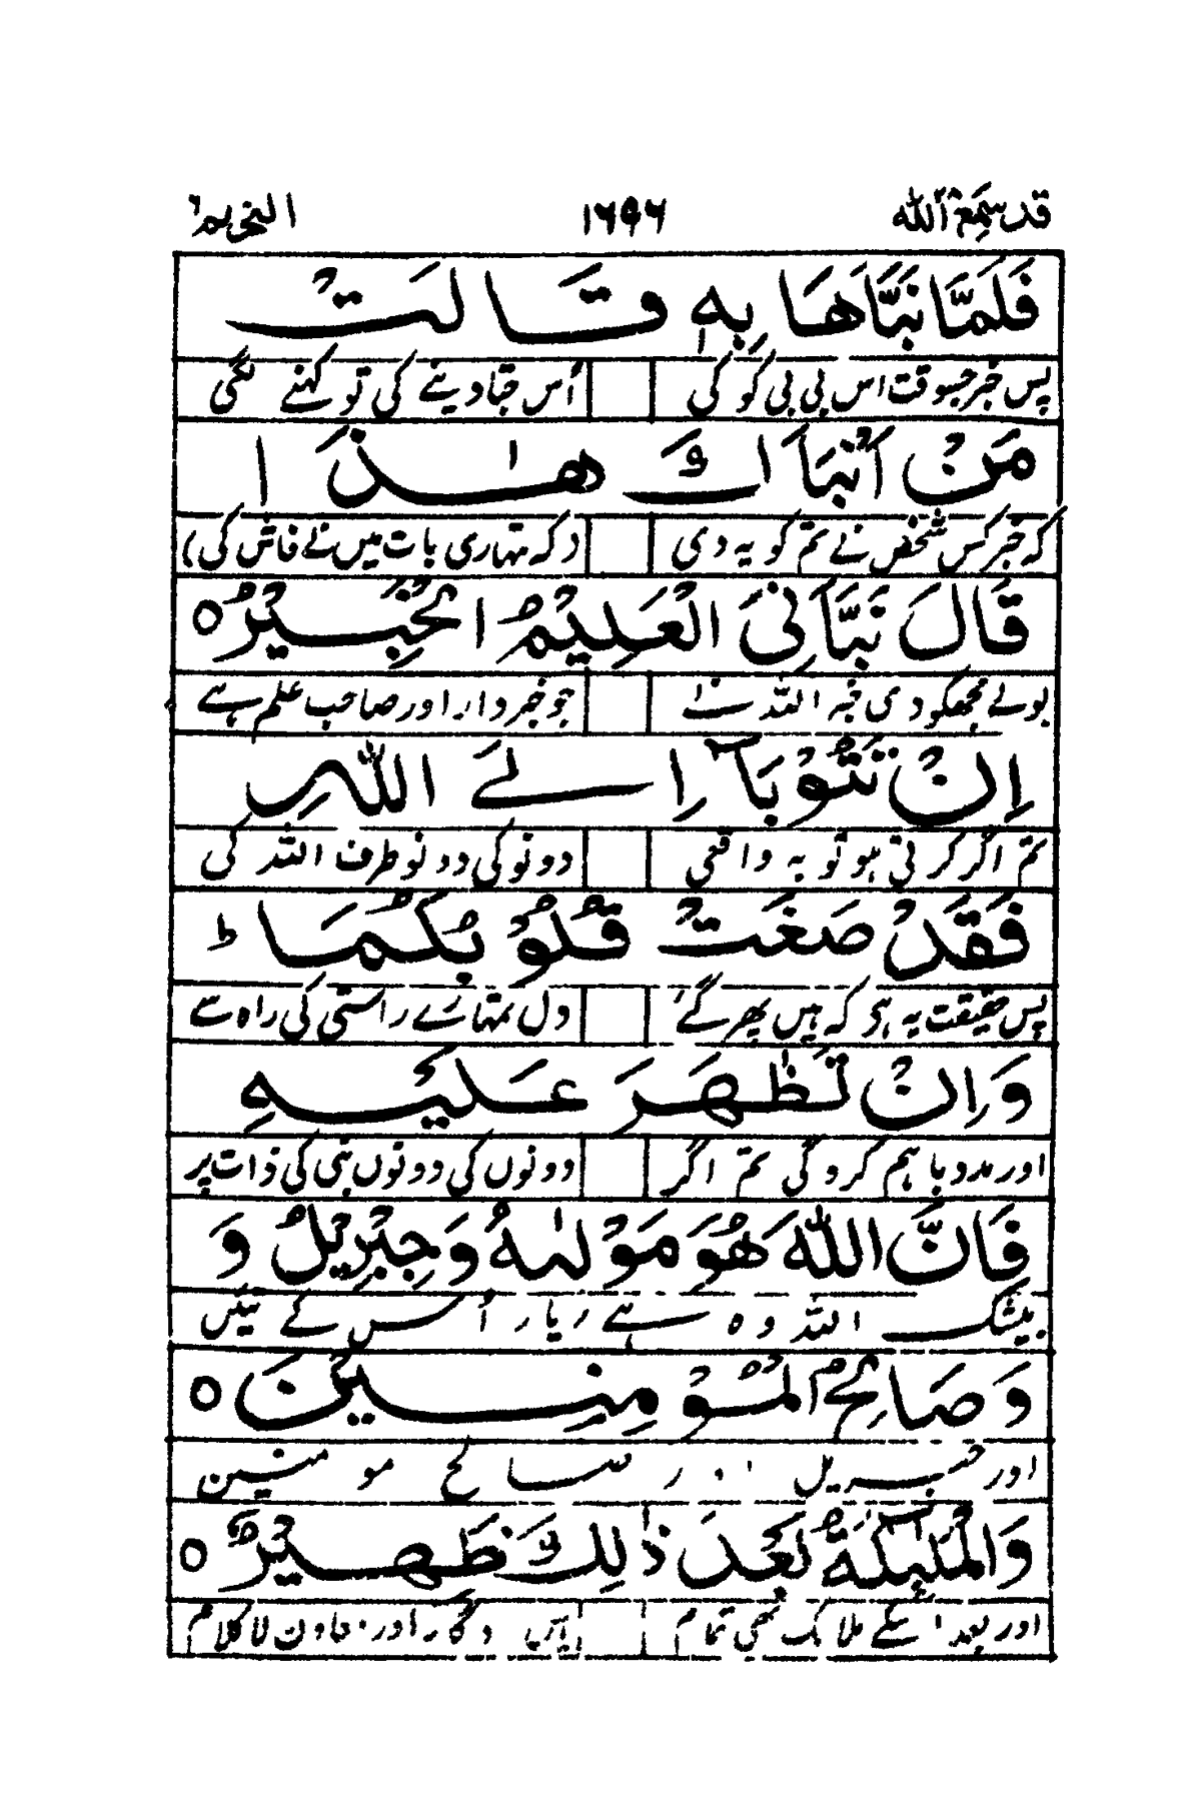 قد سمع اللہ ۱۶۵۶ التحریم ۶
فَلَمَّا نَبَّاَهَا بِهٖ قَالَتْ
پس خبر جسوقت اس بی بی کو کی اُس جتا دینے کی تو کہنے لگی
مَنْ اَنْۢبَاَكَ هٰذَا
کہ خبر کس شخص نے تم کو یہ دی (کہ تمہاری بات میں نے فاش کی)
قَالَ نَبَّاَنِیَ الْعَلِیْمُ الْخَبِیْرُ ○
بولے مجھکو دی خبر اللہ نے جو خبردار اور صاحب علم ہے
اِنْ تَتُوْبَاۤ اِلَے اللّٰهِ
تم اگر کرتی ہو توبہ واقعی دونو کی دونو طرف اللہ کی
فَقَدْ صَغَتْ قُلُوْبُكُمَا ط
پس حقیقت یہ ہو کہ ہیں پھر گئے دل تمہارے راستی کی راہ سے
وَاِنْ تَظٰهَرَ عَلَیْهِ
اور مدد باہم کرو گی تم اگر دونوں کی دونوں نبی کی ذات پر
فَاِنَّ اللّٰهَ هُوَ مَوْلٰىهُ وَجِبْرِیْلُ وَ
بیشک اللہ وہ ہے یار اُس کے تئیں
وَ صَالِحُ الْمُؤْمِنِیْنَ ○
اور جبریل صالح مومنین
وَالْمَلٰٓئِكَةُ بَعْدَ ذٰلِكَ ظَهِیْرٌ ○
اور بعد اسکے ملائک بھی تمام ہیں اور معاون لاکلام